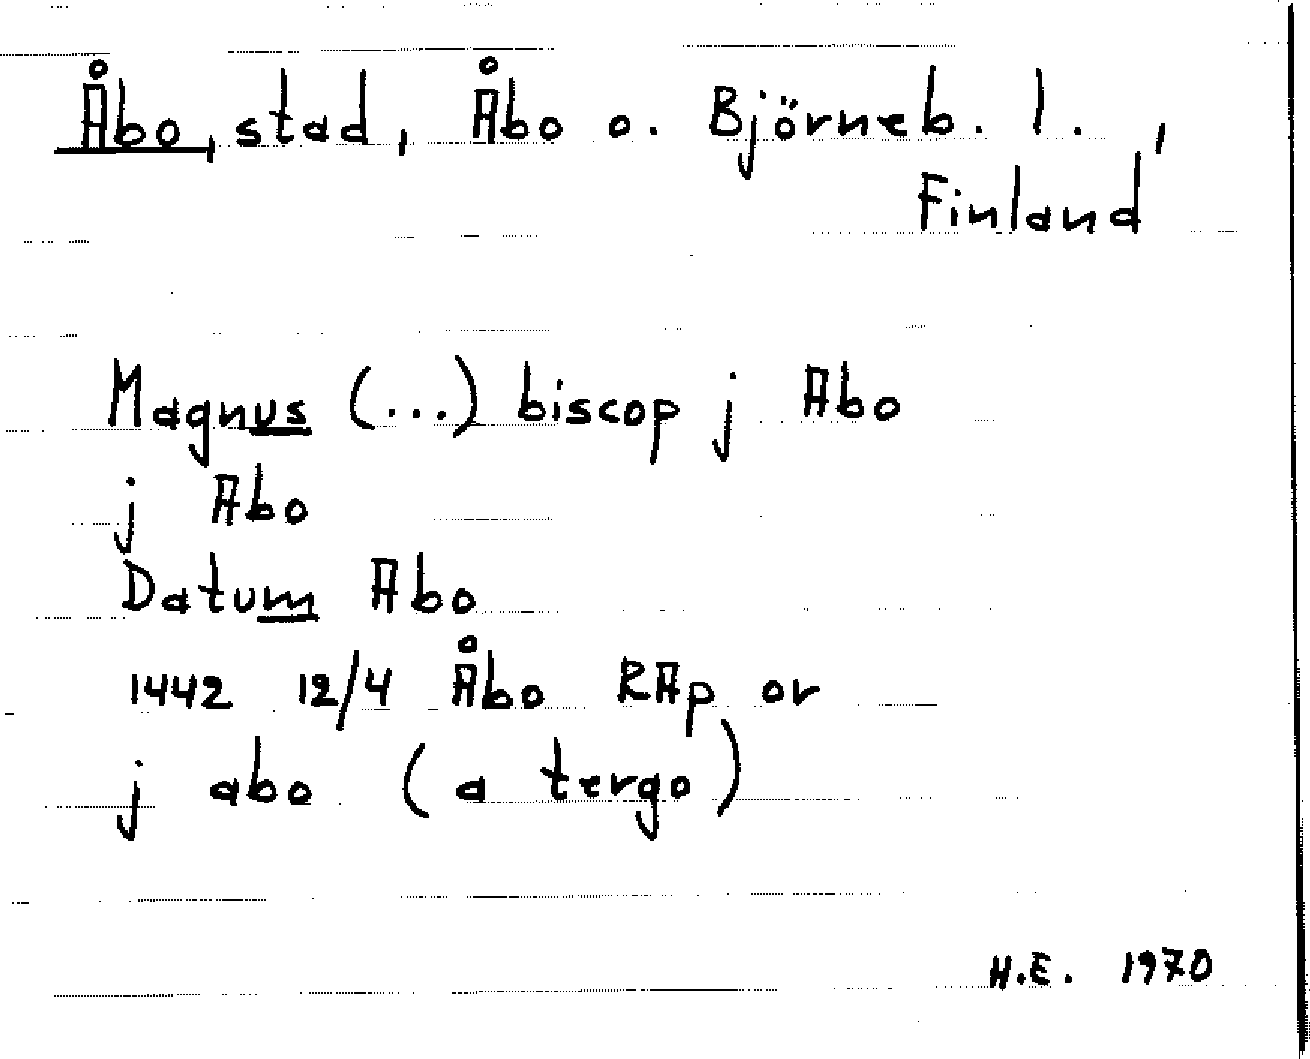 Åbo, stad, Åbo o. Björneb. l.,
Finland
Magnus (...) biscop j Abo
j Abo
Datum Abo
1442 12/4 Åbo RAp or
j abo (a tergo)
H.E. 1970